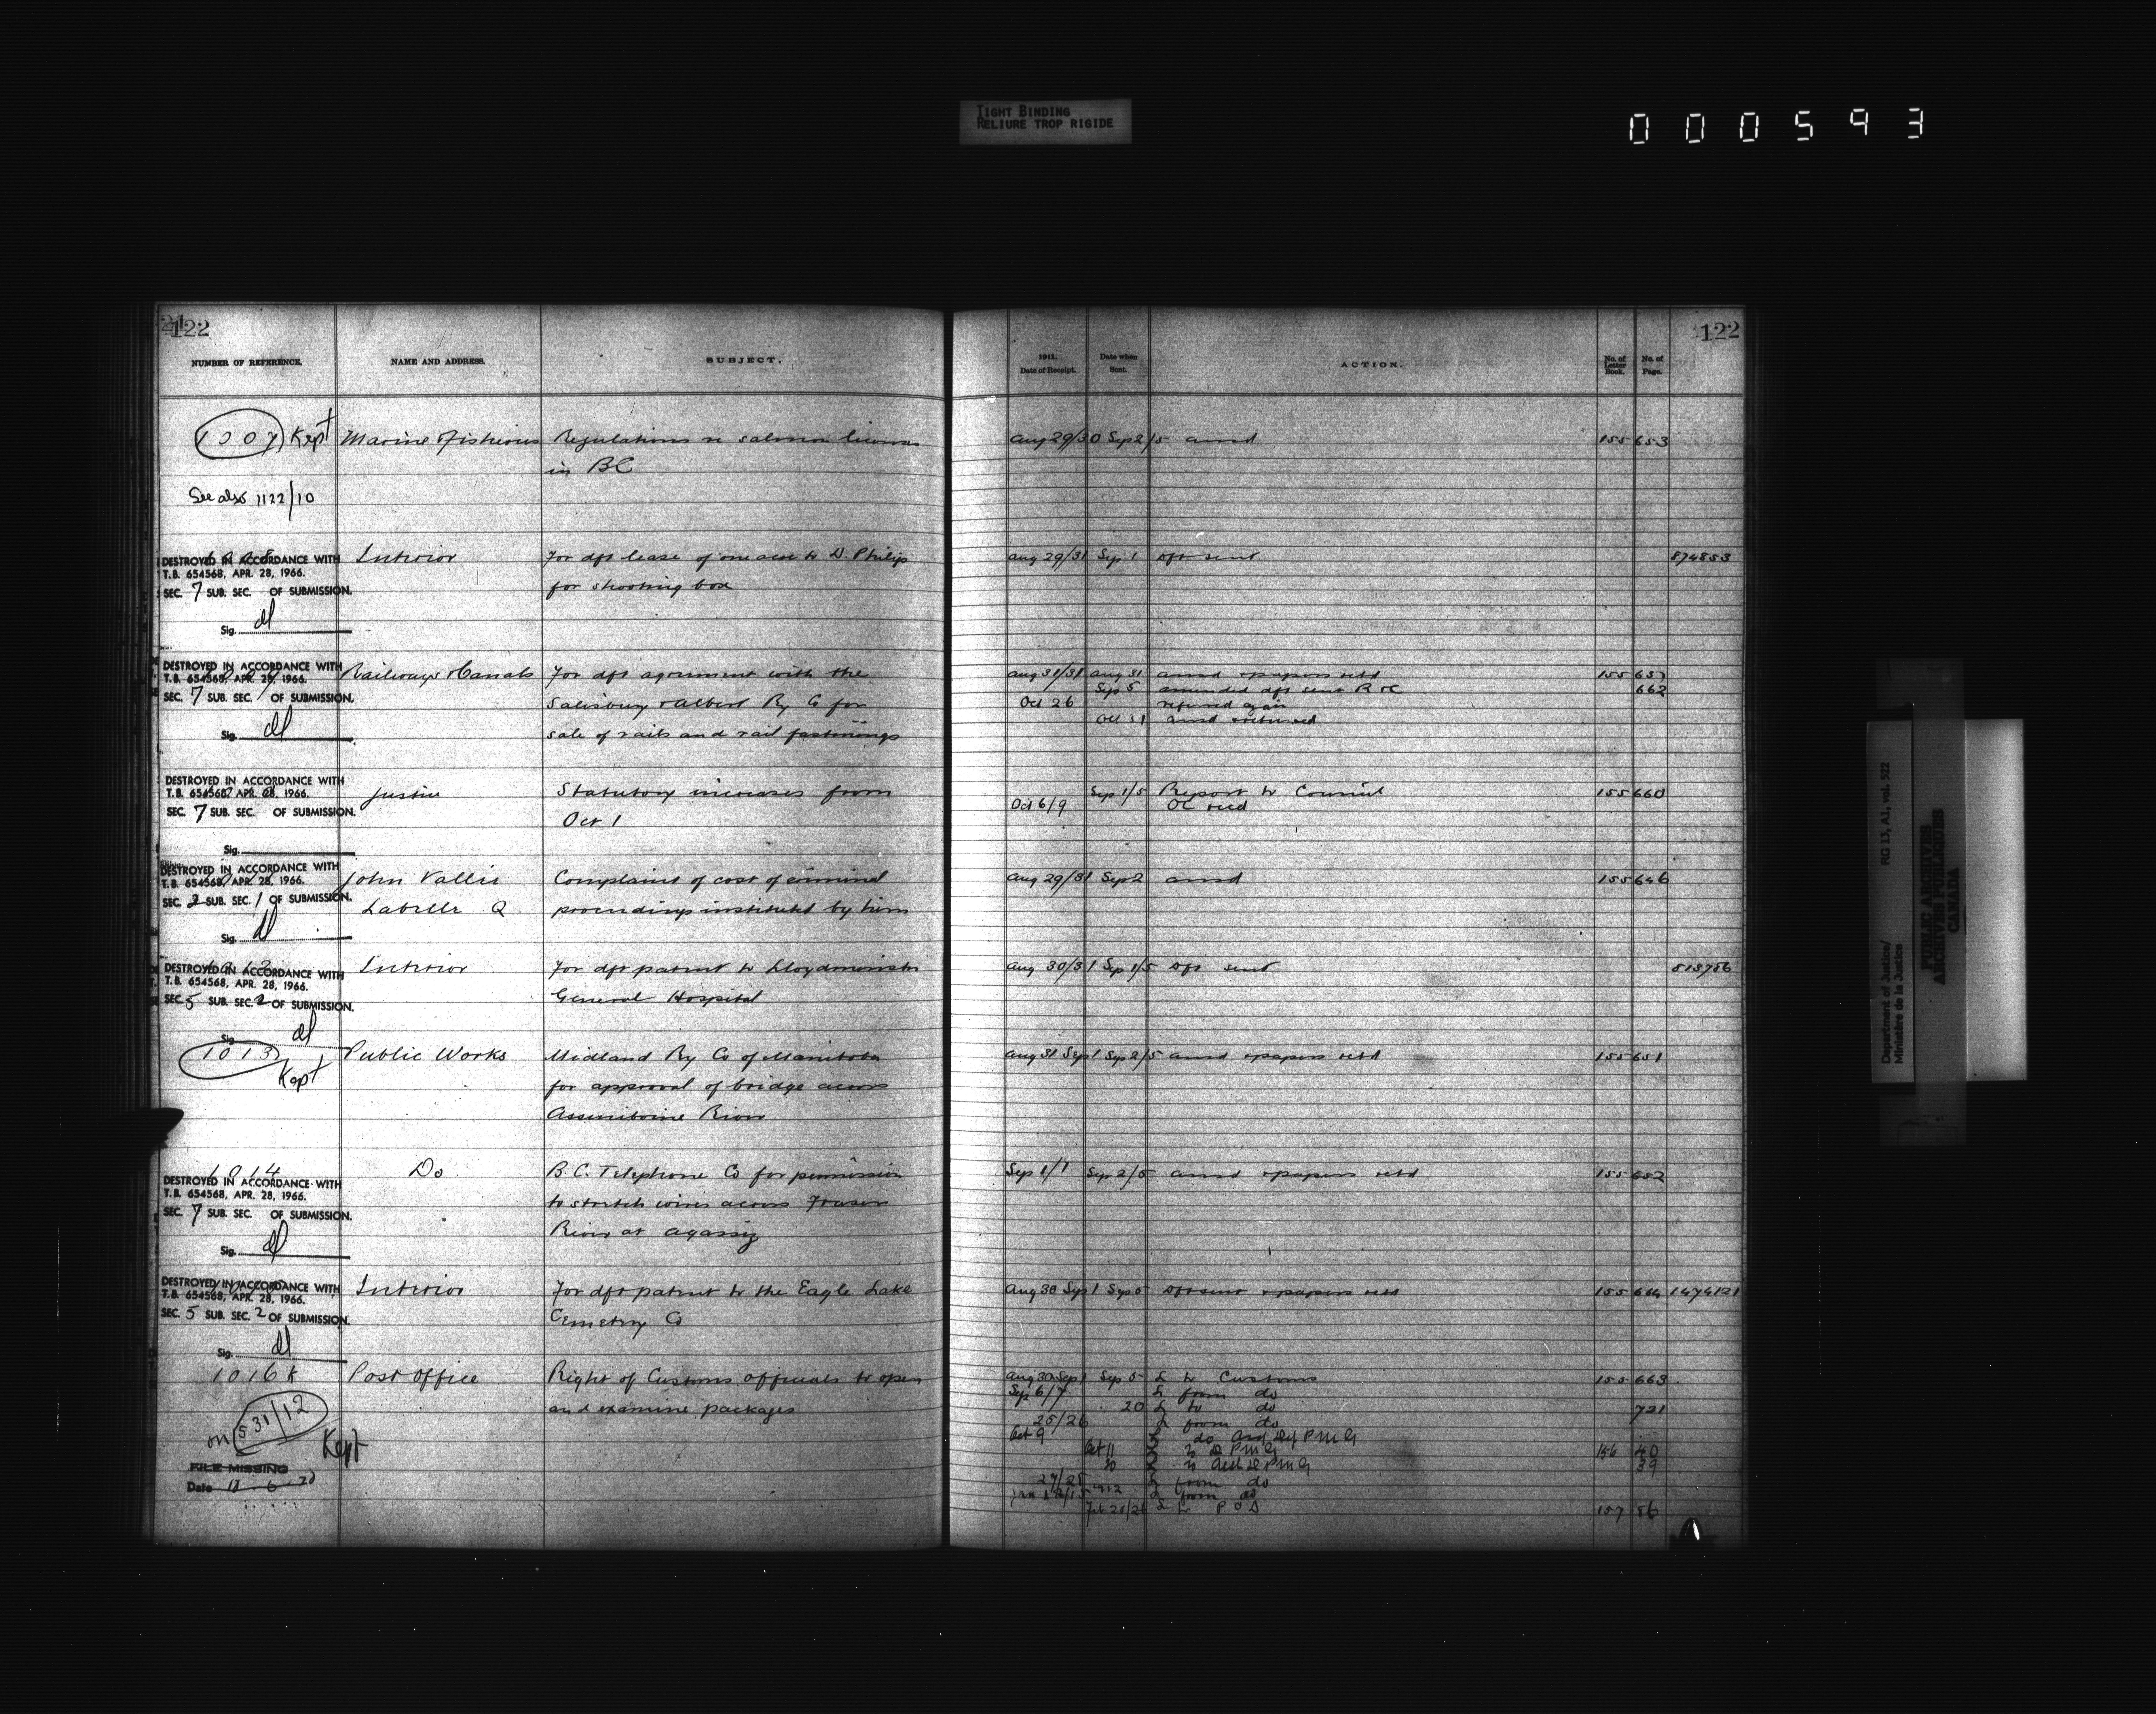 TIGHT BINDING
RELIURE TROP RIGIDE
000593
122
122
NUMBER OF REFERENCE.
NAME AND ADDRESS.
SUBJECT.
1911.
Date of Receipt.
Date when
Sent.
ACTION.
No. of
Letter
Book.
No. of
Page.
1007 Kept Marine & Fisheries Regulations re salmon licenses Aug 29/30 Sep 2/5 ansd 155 653
in BC
See also 1122/10
DESTROYED IN ACCORDANCE WITH Interior For dft lease of one acre to D. Philip Aug 29/31 Sep 1 dft sent 874853
T.B. 654568, APR. 28, 1966.
SEC. 7 SUB. SEC. OF SUBMISSION. for shooting box
Sig.
DESTROYED IN ACCORDANCE WITH Railways & Canals For dft agreement with the Aug 31/31 Aug 31 ansd & papers retd 155 657
T.B. 654568, APR. 28, 1966. Sep 5 amended dft sent R & C 662
SEC. 7 SUB. SEC. OF SUBMISSION. Salisbury & Albert Ry Co for Oct 26 referred again
Oct 31 ansd & returned
Sig. sale of rails and rail fastenings
DESTROYED IN ACCORDANCE WITH Justice Statutory increases from Sep 1/5 Report to Council 155 660
T.B. 654568, APR. 28, 1966. Oct 6/9 OC recd
SEC. 7 SUB. SEC. OF SUBMISSION. Oct 1
Sig.
DESTROYED IN ACCORDANCE WITH John Vallis Complaint of cost of criminal Aug 29/31 Sep 2 ansd 155 646
T.B. 654568, APR. 28, 1966.
SEC. 2 SUB. SEC. 1 OF SUBMISSION. Labelle Q proceedings instituted by him
Sig.
DESTROYED IN ACCORDANCE WITH Interior For dft patent to Lloydminster Aug 30/31 Sep 1/5 dft sent 513756
T.B. 654568, APR. 28, 1966.
SEC. 5 SUB. SEC. 2 OF SUBMISSION. General Hospital
Sig.
1013 Public Works Midland Ry Co of Manitoba Aug 31 Sep 1 Sep 2/5 ansd & papers retd 155 651
Kept for approval of bridge across
Assiniboine River
1014 Do B.C. Telephone Co for permission Sep 1/1 Sep 2/5 ansd & papers retd 155 652
DESTROYED IN ACCORDANCE WITH
T.B. 654568, APR. 28, 1966. to stretch wires across Fraser
SEC. 7 SUB. SEC. OF SUBMISSION. River at Agassiz
Sig.
DESTROYED IN ACCORDANCE WITH Interior For dft patent to the Eagle Lake Aug 30 Sep 1 Sep 5 dft sent & papers retd 155 664 1474121
T.B. 654568, APR. 28, 1966.
SEC. 5 SUB. SEC. 2 OF SUBMISSION. Cemetery Co
Sig.
1016 K Post Office Right of Customs officials to open Aug 30 Sep 1 Sep 5 L to Customs 155 663
Sep 6/7 L from do
on 531/12 and examine packages 20 L to do 721
25/26 L from do
Kept Oct 9 L do Asst Dy P M G
Oct 11 L to D P M G 156 40
FILE MISSING 10 L to Asst D P M G 39
Date 27/28 L from do
1912 L from do
Feb L to P O D 157 56
Department of Justice/
Ministère de la Justice
RG 13, A1, vol. 522
PUBLIC ARCHIVES
ARCHIVES PUBLIQUES
CANADA